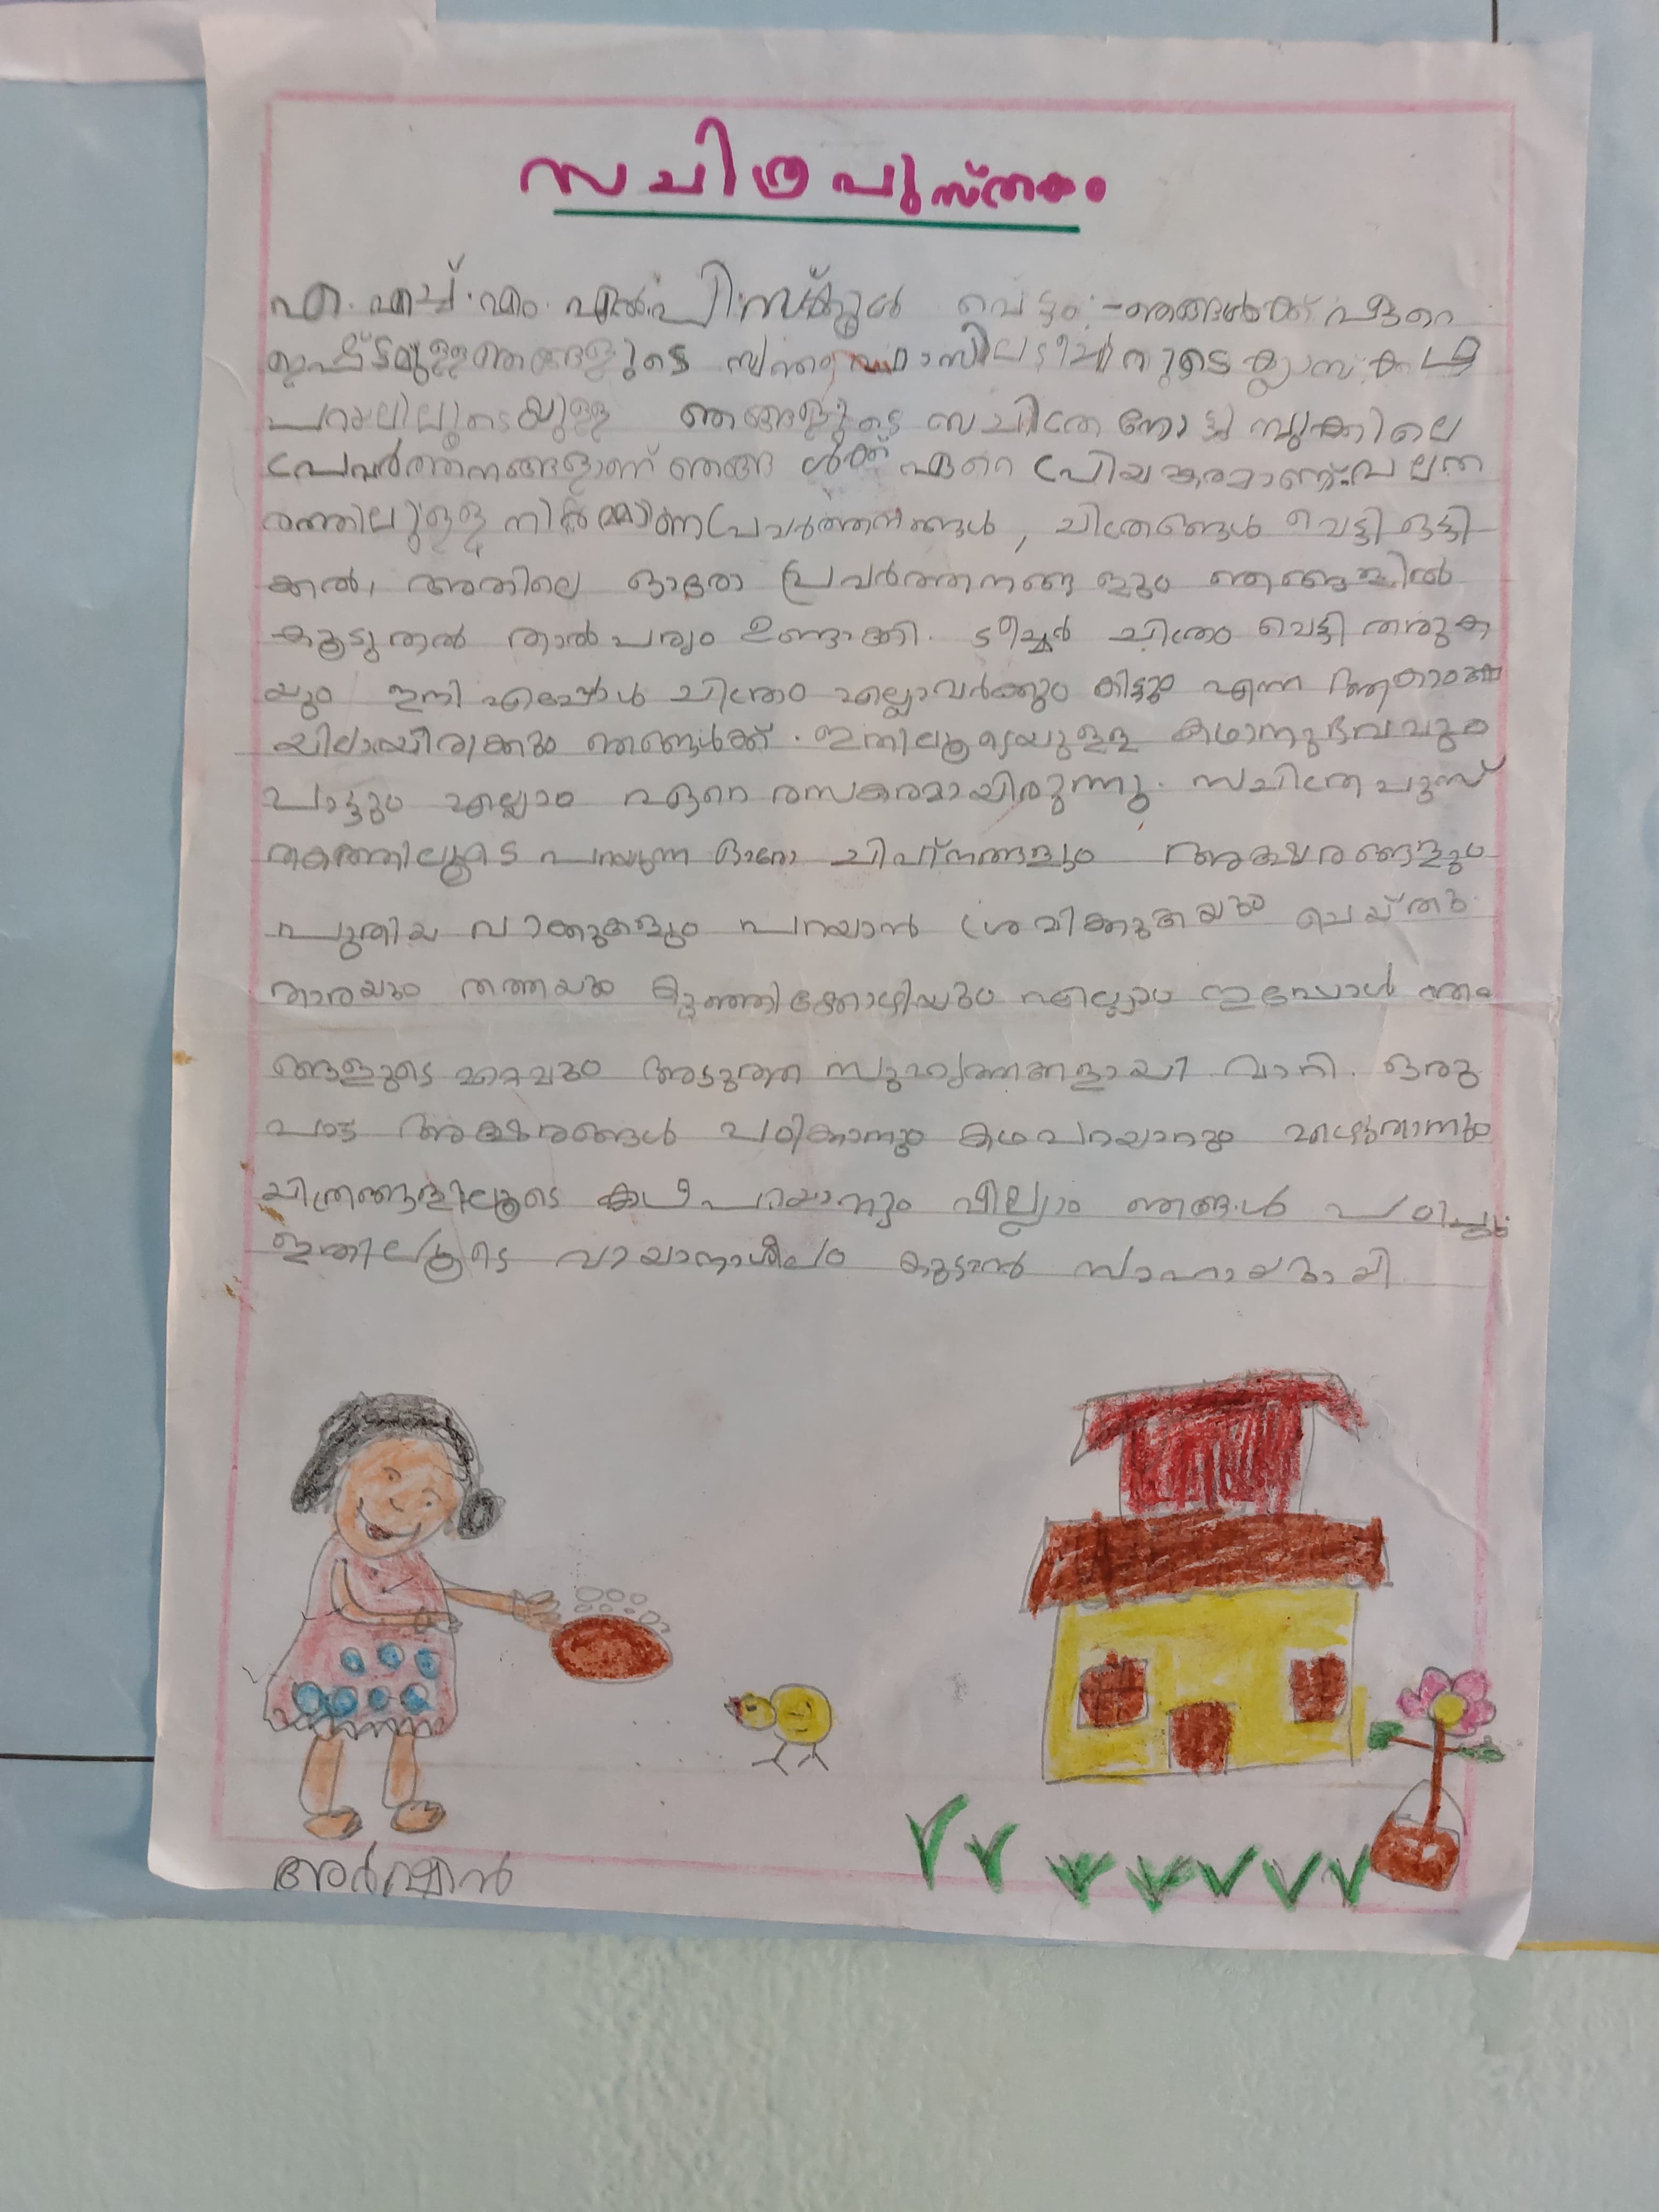 സചിത്രപുസ്തകം
എ.എച്ച്.എം.എൽ.പി.സ്കൂൾ വെട്ടം :- ഞങ്ങൾക്ക് ഏറെ
ഇഷ്ടമുള്ള ഞങ്ങളുടെ ടീച്ചറുടെ ക്ലാസ് കഥ
പറച്ചിലിലൂടെയുള്ള ഞങ്ങളുടെ സചിത്ര നോട്ട് ബുക്കിലെ
പ്രവർത്തനങ്ങളാണ് ഞങ്ങൾക്ക് ഏറെ പ്രിയങ്കരമാണ്. പലത
രത്തിലുള്ള നിർമ്മാണപ്രവർത്തനങ്ങൾ, ചിത്രങ്ങൾ വെട്ടി ഒട്ടി
ക്കൽ, അതിലെ ഓരോ പ്രവർത്തനങ്ങളും ഞങ്ങളിൽ
കൂടുതൽ താൽപര്യം ഉണ്ടാക്കി. ടീച്ചർ ചിത്രം വെട്ടി തരുക
യും ഇനി എപ്പോൾ ചിത്രം എല്ലാവർക്കും കിട്ടും എന്ന
യിലായിരുക്കും ഞങ്ങൾക്ക്. ഇതിലൂടെയുള്ള കഥാനുഭവവും
പാട്ടും എല്ലാം ഏറെ രസകരമായിരുന്നു. സചിത്ര പുസ്
തകത്തിലൂടെ പറയുന്ന ഓരോ ചിഹ്നങ്ങളും അക്ഷരങ്ങളും
പുതിയ വാക്കുകളും പറയാൻ ശ്രമിക്കുകയും ചെയ്തു.
താരയും തത്തയും കുഞ്ഞിക്കോഴിയും എല്ലാം ഇപ്പോൾ ഞ
ങ്ങളുടെ ഏറ്റവും അടുത്ത സുഹൃത്തുക്കളായി മാറി. ഒരു
പാട് അക്ഷരങ്ങൾ പഠിക്കാനും കഥപറയാനും എഴുതാനും
ചിത്രങ്ങളിലൂടെ കഥ പറയാനും എല്ലാം ഞങ്ങൾ പഠിച്ചു.
ഇതിലൂടെ വായനാശീലം കൂടാൻ സഹായമായി
അർഷാൻ